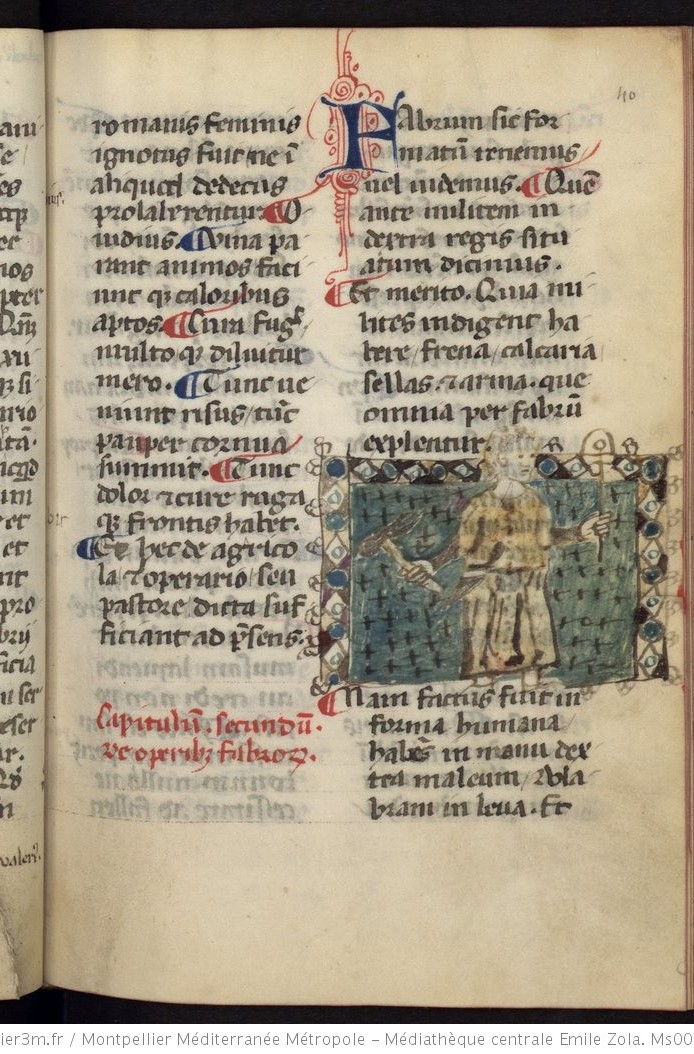 40
romanis feminis
ignotus fuit / ne ī
aliquod dedecus
prolaberentur. O
uidius. Vina pa
rant animos faci
unt qz caloribus
aptos. Cura fugit
multo qz diluitur
mero. Tunc ue
niunt risus / tūc
pauper cornua
sumit. Tunc
dolor ⁊ cure ruga
qz frontis habet.
Et hec de agrico
la / ⁊ operario / seu
pastore dicta suf
ficiant ad p̄sens.
Capitulū . secundū .
de operibꝫ fabroꝝ .
FAbrum sic for
matū inuenimus
uel uidemus. Quē
ante militem in
dextra regis situ
atum dicimus .
Et merito. Quia mi
lites indigent ha
bere / frena / calcaria
sellas . ⁊ arma . que
omnia per fabrū
explentur
Nam factus fuit in
forma humana
habēs in manu dex
tra maleum / dola
bram in leua . Et
ier3m.fr / Montpellier Méditerranée Métropole – Médiathèque centrale Emile Zola. Ms00